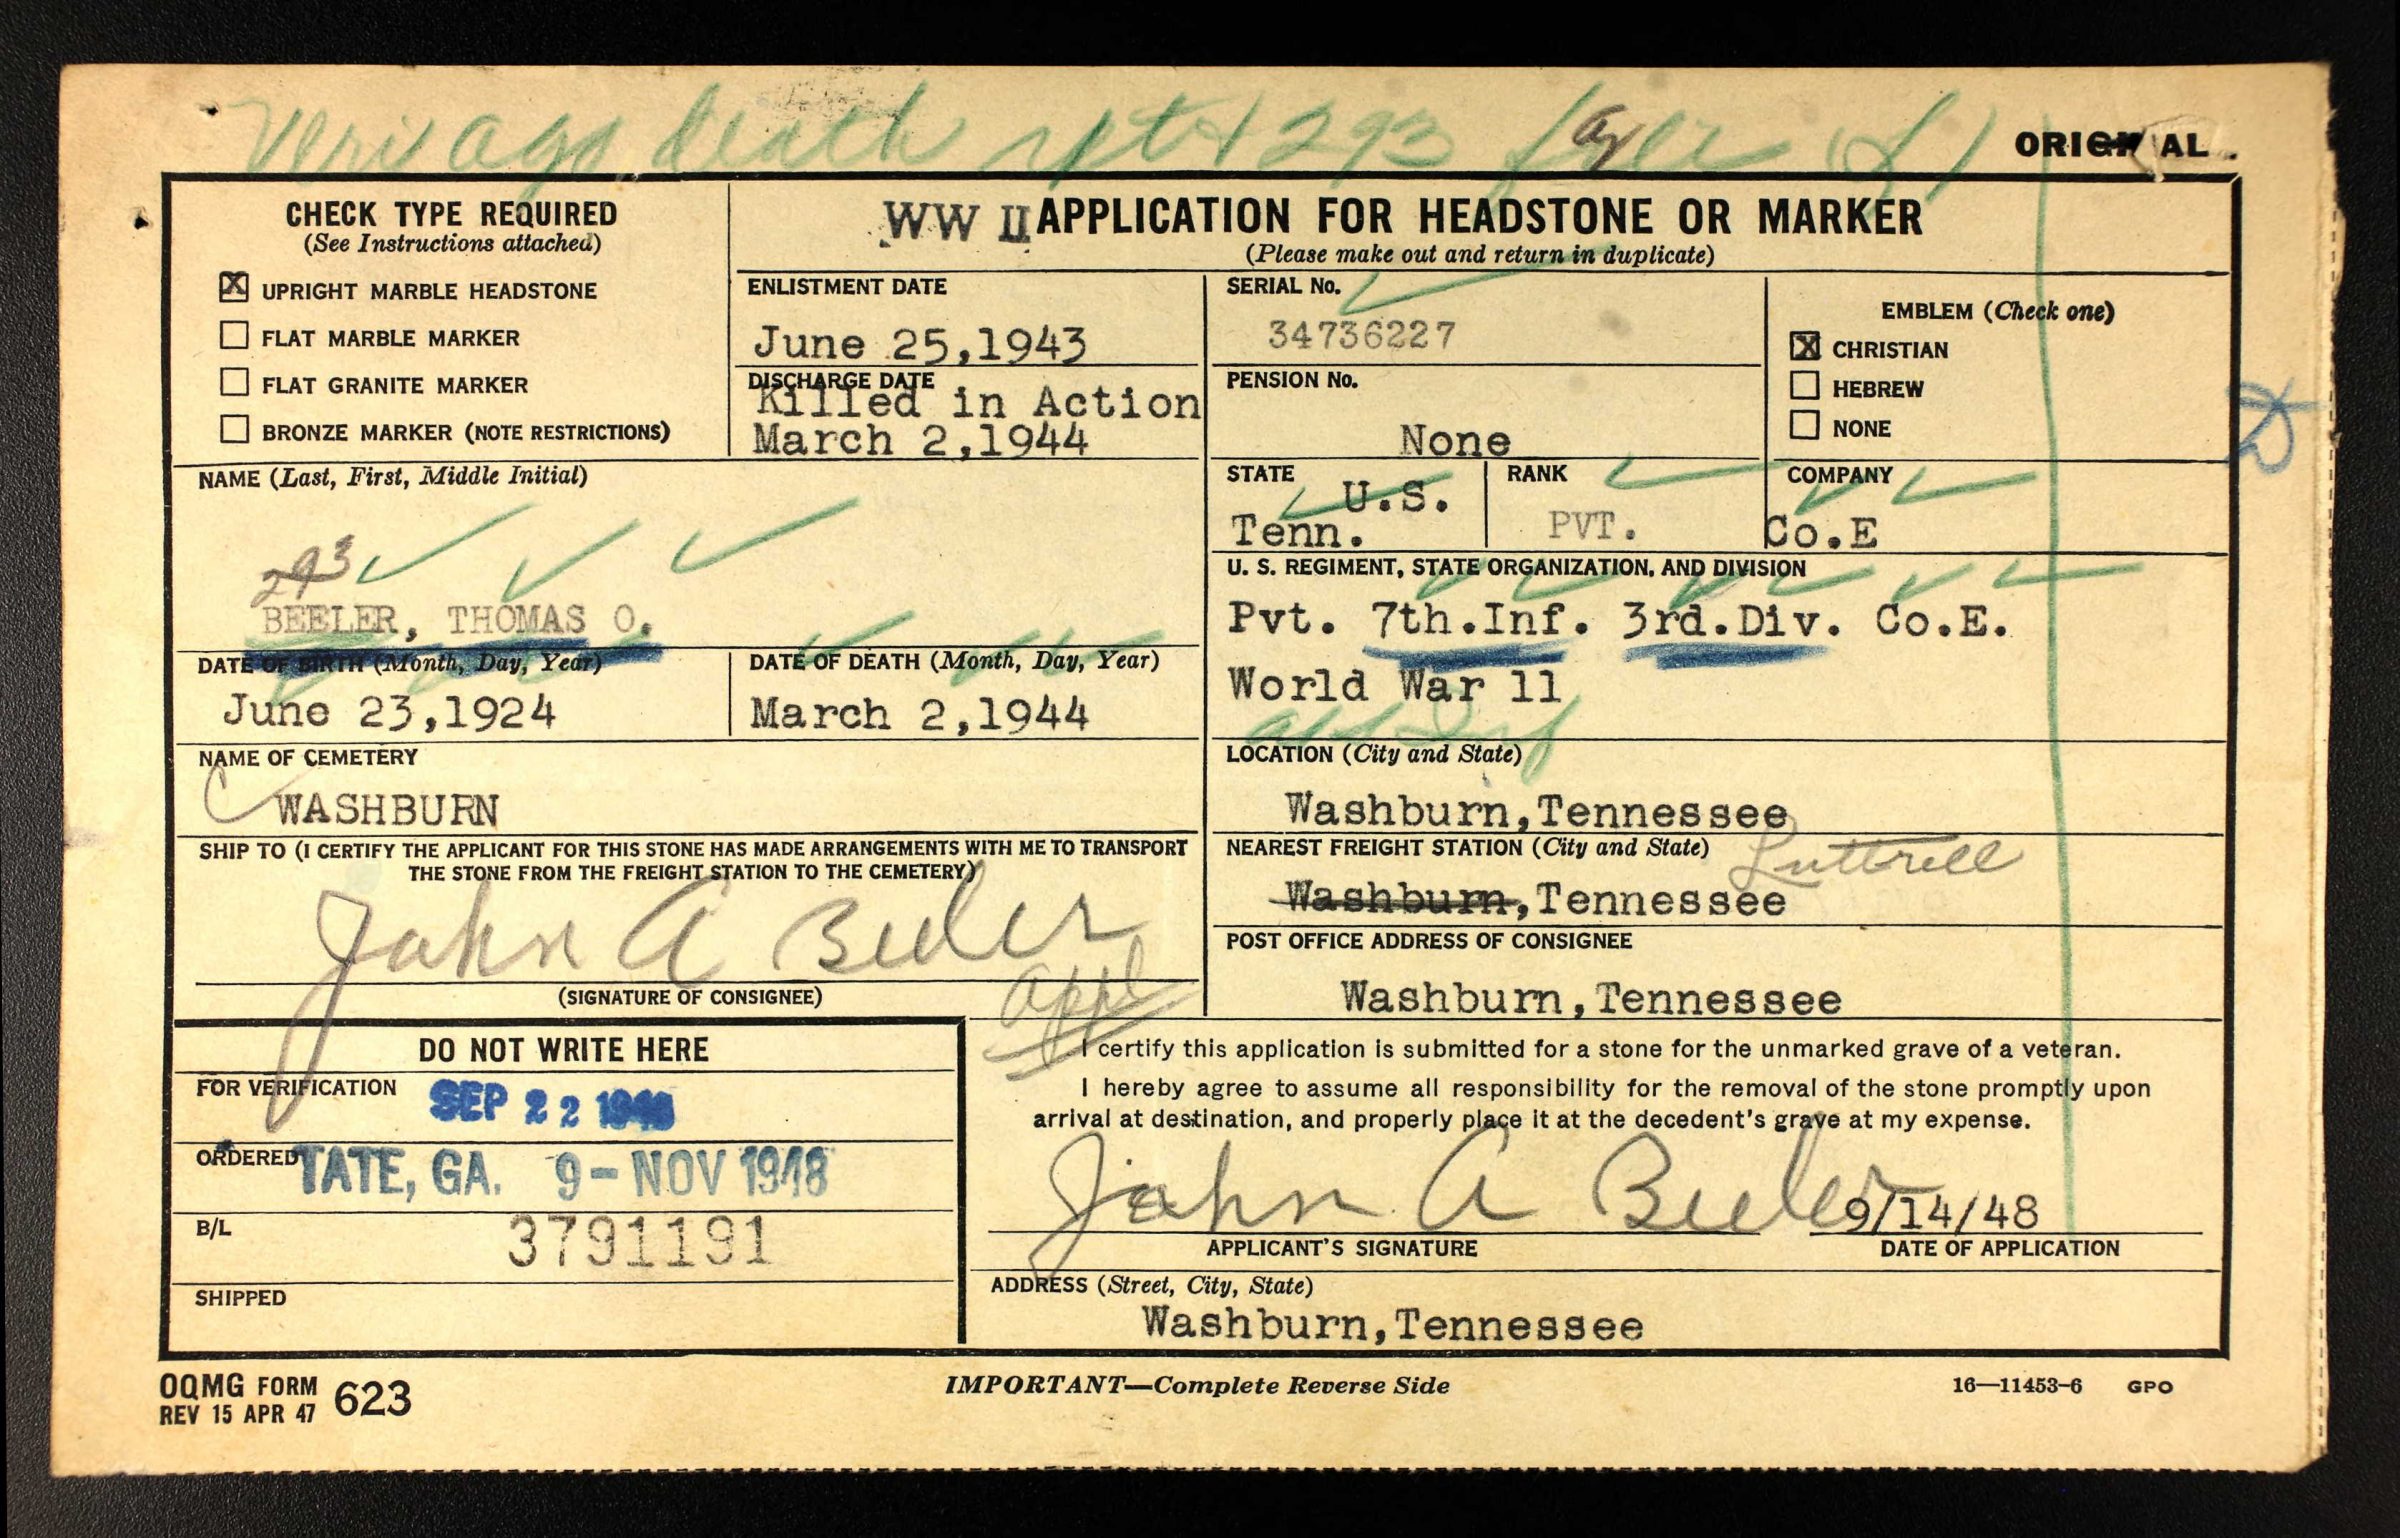 Veri ago death rpt 293
ORIGINAL
CHECK TYPE REQUIRED
(See Instructions attached)
X UPRIGHT MARBLE HEADSTONE
FLAT MARBLE MARKER
FLAT GRANITE MARKER
BRONZE MARKER (NOTE RESTRICTIONS)
WW II APPLICATION FOR HEADSTONE OR MARKER
(Please make out and return in duplicate)
ENLISTMENT DATE
June 25,1943
DISCHARGE DATE
Killed in Action
March 2,1944
SERIAL No.
34736227
PENSION No.
None
EMBLEM (Check one)
X CHRISTIAN
HEBREW
NONE
NAME (Last, First, Middle Initial)
293
BEELER, THOMAS O.
STATE
U.S.
Tenn.
RANK
PVT.
COMPANY
Co.E
U. S. REGIMENT, STATE ORGANIZATION, AND DIVISION
Pvt. 7th.Inf. 3rd.Div. Co.E.
World War 11
DATE OF BIRTH (Month, Day, Year)
June 23,1924
DATE OF DEATH (Month, Day, Year)
March 2,1944
NAME OF CEMETERY
WASHBURN
LOCATION (City and State)
Washburn,Tennessee
SHIP TO (I CERTIFY THE APPLICANT FOR THIS STONE HAS MADE ARRANGEMENTS WITH ME TO TRANSPORT
THE STONE FROM THE FREIGHT STATION TO THE CEMETERY)
John A Beeler
(SIGNATURE OF CONSIGNEE)
appl
NEAREST FREIGHT STATION (City and State)
Luttrell
Washburn,Tennessee
POST OFFICE ADDRESS OF CONSIGNEE
Washburn,Tennessee
DO NOT WRITE HERE
FOR VERIFICATION SEP 22 1948
ORDERED TATE, GA. 9-NOV 1948
B/L 3791191
SHIPPED
I certify this application is submitted for a stone for the unmarked grave of a veteran.
I hereby agree to assume all responsibility for the removal of the stone promptly upon
arrival at destination, and properly place it at the decedent's grave at my expense.
John A Beeler 9/14/48
APPLICANT'S SIGNATURE
DATE OF APPLICATION
ADDRESS (Street, City, State)
Washburn,Tennessee
OQMG FORM 623
REV 15 APR 47
IMPORTANT—Complete Reverse Side
16—11453-6 GPO